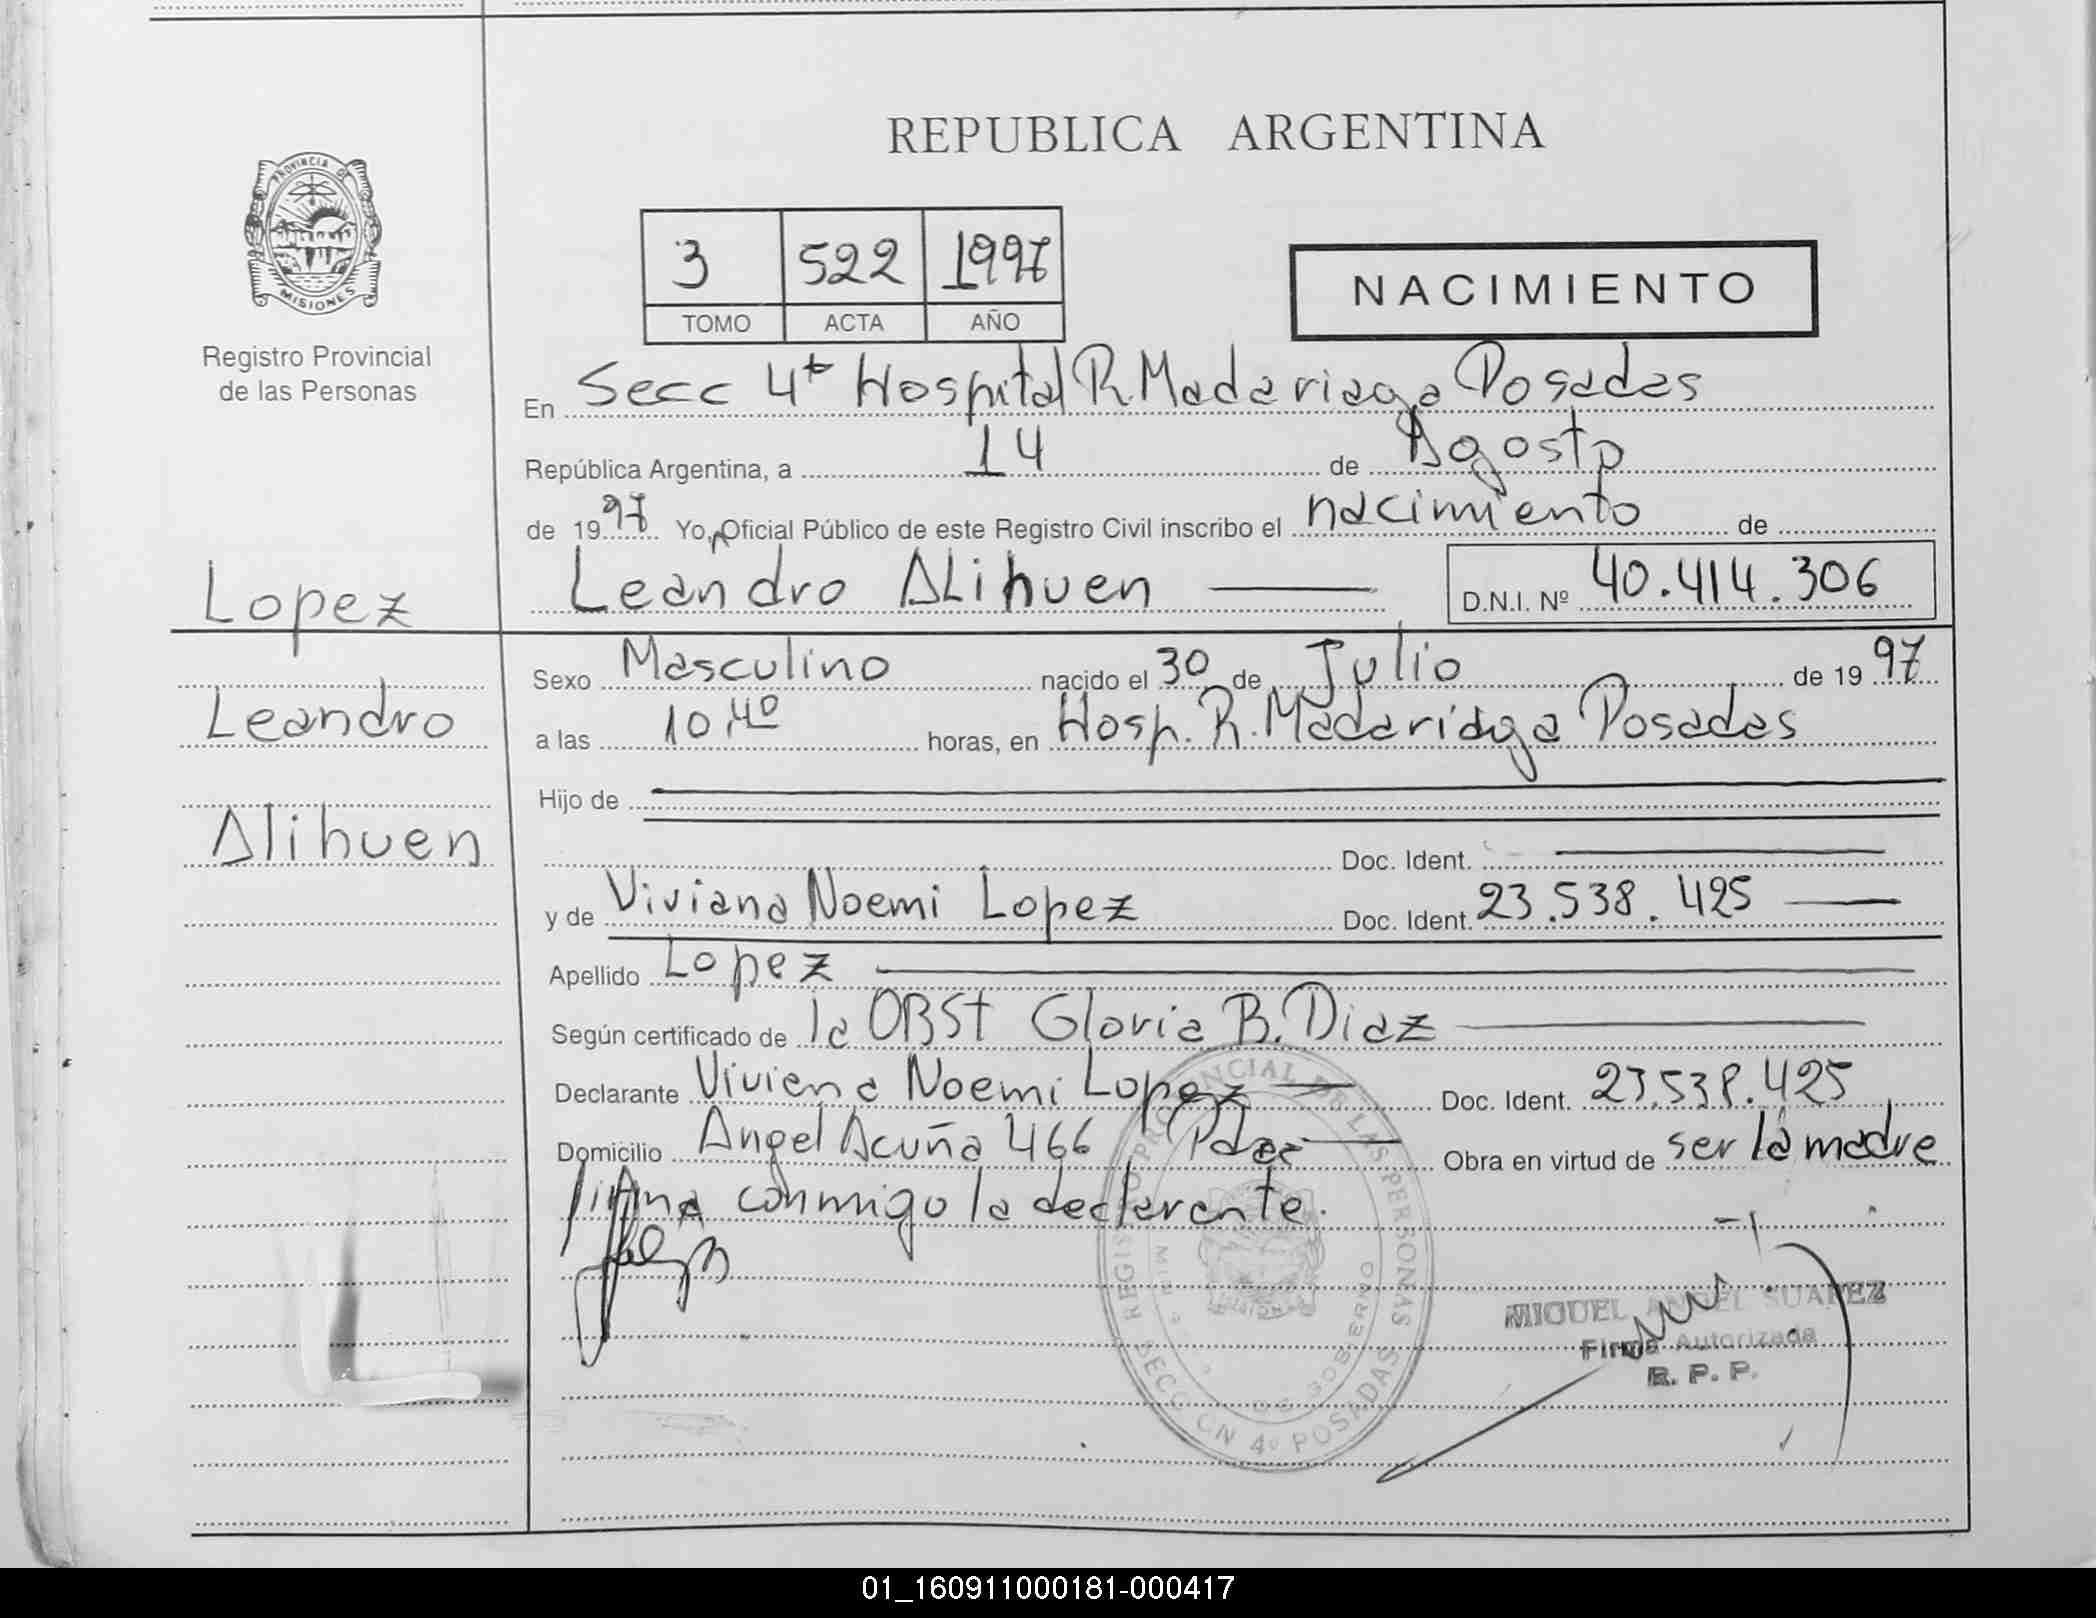 REPUBLICA ARGENTINA
PROVINCIA DE
MISIONES
Registro Provincial
de las Personas
3 522 1997
TOMO ACTA AÑO
NACIMIENTO
En Secc 4ta Hospital R. Madariaga Posadas
República Argentina, a 14 de Agosto
de 1997 Yo, Oficial Público de este Registro Civil inscribo el nacimiento de
Lopez
Leandro Alihuen
D.N.I. Nº 40.414.306
Leandro
Alihuen
Sexo Masculino nacido el 30 de Julio de 1997
a las 10,40 horas, en Hosp. R. Madariaga Posadas
Hijo de
Doc. Ident.
y de Viviana Noemi Lopez Doc. Ident. 23.538.425
Apellido Lopez
Según certificado de la OBST Gloria B. Diaz
Declarante Viviana Noemi Lopez Doc. Ident. 23.538.425
Domicilio Angel Acuña 466 Obra en virtud de ser la madre
firma conmigo la declarante.
REGISTRO PROVINCIAL DE LAS PERSONAS
SECCION 4º POSADAS
DE GOBIERNO
MIGUEL ANGEL SUAREZ
Firma Autorizada
R. P. P.
01_160911000181-000417